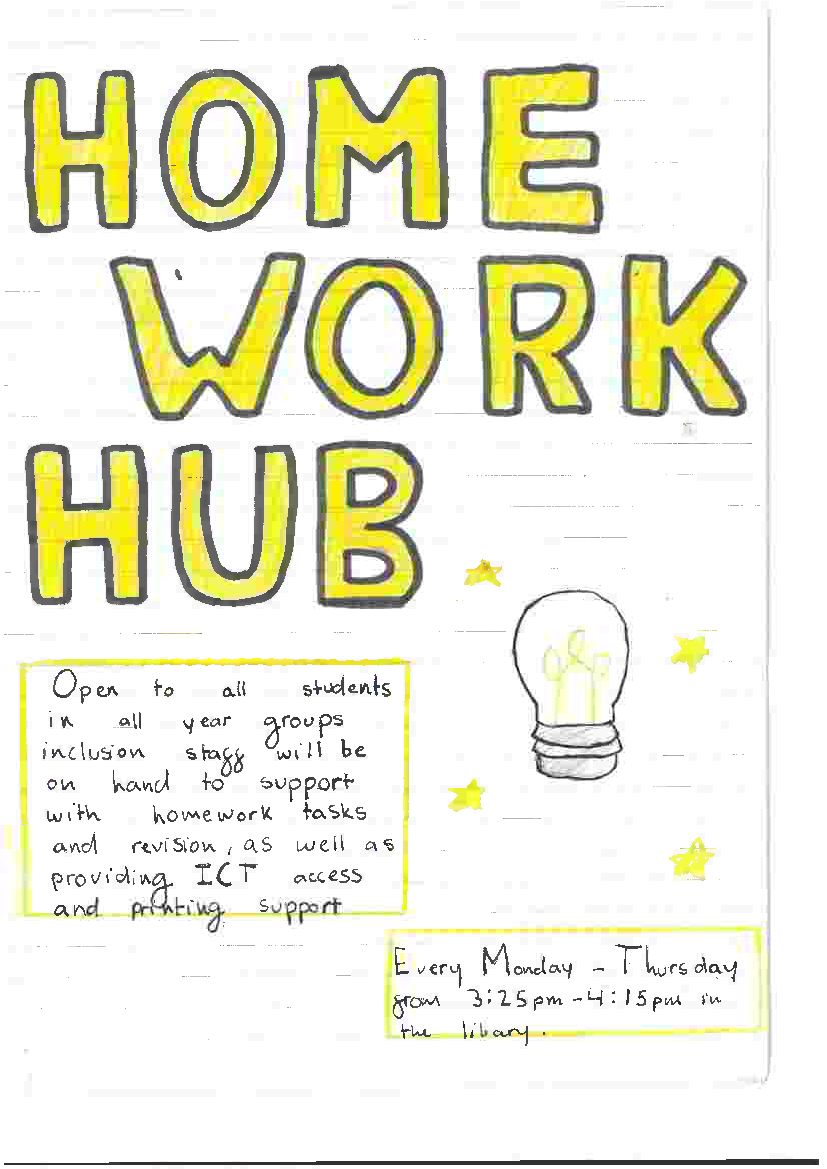 HOME
WORK
HUB
Open to all students
in all year groups
inclusion staff will be
on hand to support
with homework tasks
and revision, as well as
providing ICT access
and printing support
Every Monday - Thursday
from 3:25pm - 4:15pm in
the libary.